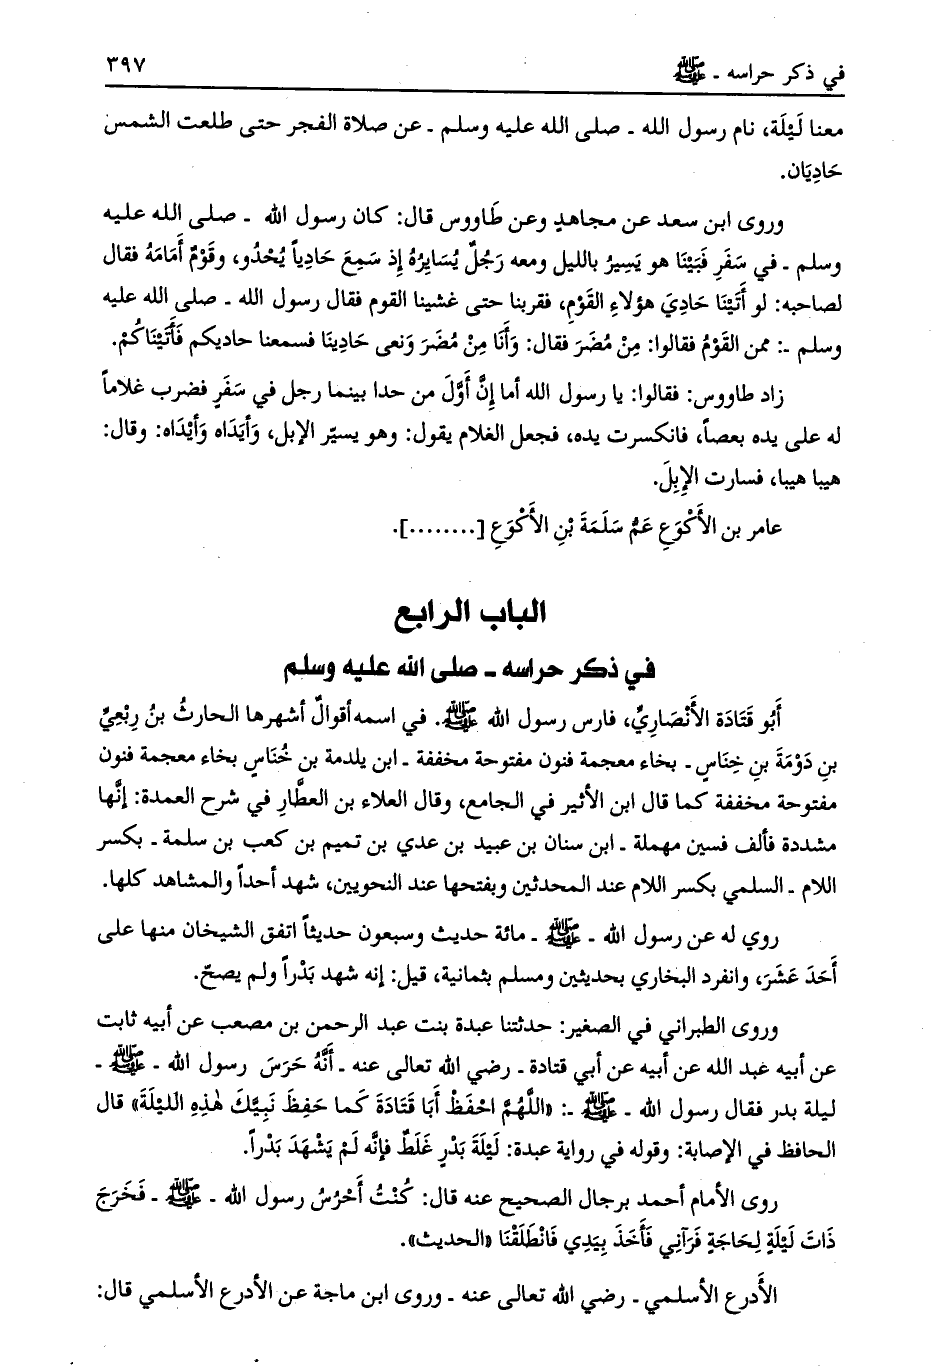 في ذكر حراسه - ﷺ ٣٩٧
معنا لَيْلَة، نام رسول الله - صلى الله عليه وسلم - عن صلاة الفجر حتى طلعت الشمس
حَادِيَان.
وروى ابن سعد عن مجاهدٍ وعن طَاووس قال: كان رسول الله - صلى الله عليه
وسلم - في سَفَرٍ فَبَيْنَا هو يَسِيرُ بالليل ومعه رَجُلٌ يُسَايِرُهُ إذ سَمِعَ حَادِياً يُحْدُو، وقَوْمٌ أَمَامَهُ فقال
لصاحبه: لو أَتَيْنَا حَادِيَ هؤلاءِ القَوْمِ، فقربنا حتى غشينا القوم فقال رسول الله - صلى الله عليه
وسلم -: ممن القَوْمُ فقالوا: مِنْ مُضَرَ فقال: وَأَنَا مِنْ مُضَرَ وَنعى حَادِينَا فسمعنا حاديكم فَأَتَيْنَاكُمْ.
زاد طاووس: فقالوا: يا رسول الله أما إنَّ أَوَّلَ من حدا بينما رجل في سَفَرٍ فضرب غلاماً
له على يده بعصاً، فانكسرت يده، فجعل الغلام يقول: وهو يسيّر الإبل، وَأَيَدَاه وَأَيْدَاه: وقال:
هيبا هيبا، فسارت الإِبِلَ.
عامر بن الأَكْوَعِ عَمُّ سَلَمَةَ بْنِ الأَكْوَعِ [........].
الباب الرابع
في ذكر حراسه - صلى الله عليه وسلم
أَبُو قَتَادَة الأَنْصَارِيُّ، فارس رسول الله ﷺ. في اسمه أقوالٌ أشهرها الحارثُ بنُ رِبْعِيٍّ
بنِ دَوْمَةَ بنِ خِنَاسٍ - بخاء معجمة فنون مفتوحة مخففة - ابن يلدمة بن خُنَاسٍ بخاء معجمة فنون
مفتوحة مخففة كما قال ابن الأثير في الجامع، وقال العلاء بن العطَّارِ في شرح العمدة: إنَّها
مشددة فألف فسين مهملة - ابن سنان بن عبيد بن عدي بن تميم بن كعب بن سلمة - بكسر
اللام - السلمي بكسر اللام عند المحدثين وبفتحها عند النحويين، شهد أحداً والمشاهد كلها.
روي له عن رسول الله - ﷺ - مائة حديث وسبعون حديثاً اتفق الشيخان منها على
أَحَدَ عَشَرَ، وانفرد البخاري بحديثين ومسلم بثمانية، قيل: إنه شهد بَدْراً ولم يصحّ.
وروى الطبراني في الصغير: حدثتنا عبدة بنت عبد الرحمن بن مصعب عن أبيه ثابت
عن أبيه عبد الله عن أبيه عن أبي قتادة - رضي الله تعالى عنه - أَنَّهُ حَرَسَ رسول الله - ﷺ -
ليلة بدر فقال رسول الله - ﷺ -: «اللَّهُمَّ احْفَظْ أَبَا قَتَادَةَ كَما حَفِظَ نَبِيَّكَ هٰذِهِ الليلَةَ» قال
الحافظ في الإصابة: وقوله في رواية عبدة: لَيْلَةَ بَدْرٍ غَلَطٌ فإنَّه لَمْ يَشْهَدَ بَدْراً.
روى الأمام أحمد برجال الصحيح عنه قال: كُنْتُ أَحْرُسُ رسول الله - ﷺ - فَخَرَجَ
ذَاتَ لَيْلَةٍ لِحَاجَةٍ فَرَآنِي فَأَخَذَ بِيَدِي فَانْطَلَقْنَا «الحديث».
الأَدرع الأسلمي - رضي الله تعالى عنه - وروى ابن ماجة عن الأدرع الأسلمي قال: